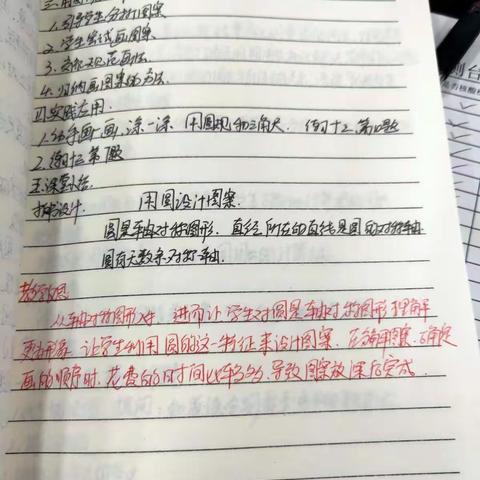 1.引导学生分析图案
2.学生尝试画图案
3.交流规范画法
4.归纳画图案的方法
四、实践应用
1.动手画一画,涂一涂 用圆规和三角尺 练习十三 第10题
2.练习十三第 题
五、课堂小结
板书设计 用圆设计图案
圆是轴对称图形.直径所在的直线是圆的对称轴
圆有无数条对称轴.
教学反思
从轴对称图形入手,进而让学生对圆是轴对称图形理解
更为形象,让学生利用圆的这一特征来设计图案.在 确定
画的顺序时,花费的时间比较多,导致图案放课后完成.